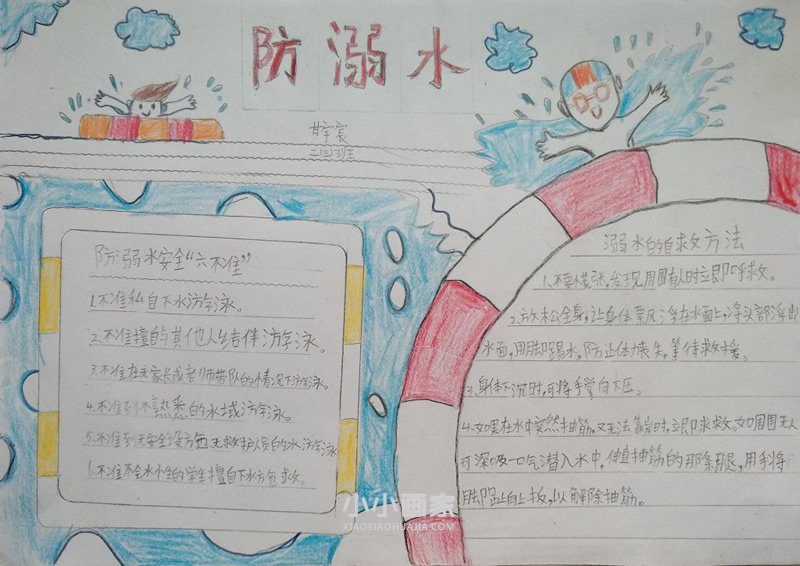 防溺水
二(四)班
防溺水安全“六不准”
1.不准私自下水游泳。
2.不准擅自与其他人结伴游泳。
3.不准在无家长或老师带队的情况下游泳。
4.不准到不熟悉的水域游泳。
5.不准到无安全设施无救护员的水游泳
6.不准不会水性的学生擅自下水施救。
溺水的自救方法
1.不要慌张,发现周围有人时立即呼救。
2.放松全身,让身体飘浮在水面上,将头部浮出
水面,用脚踢水,防止体力丧失,等待救援。
3.身体下沉时,可将手掌向下压。
4.如果在水中突然抽筋,又无法靠岸时,立即求救。如周围无人
可深吸一口气潜入水中,伸直抽筋的那条腿,用手将
脚趾向上扳,以解除抽筋。
小小画家
XIAOXIAOHUAJIA.COM